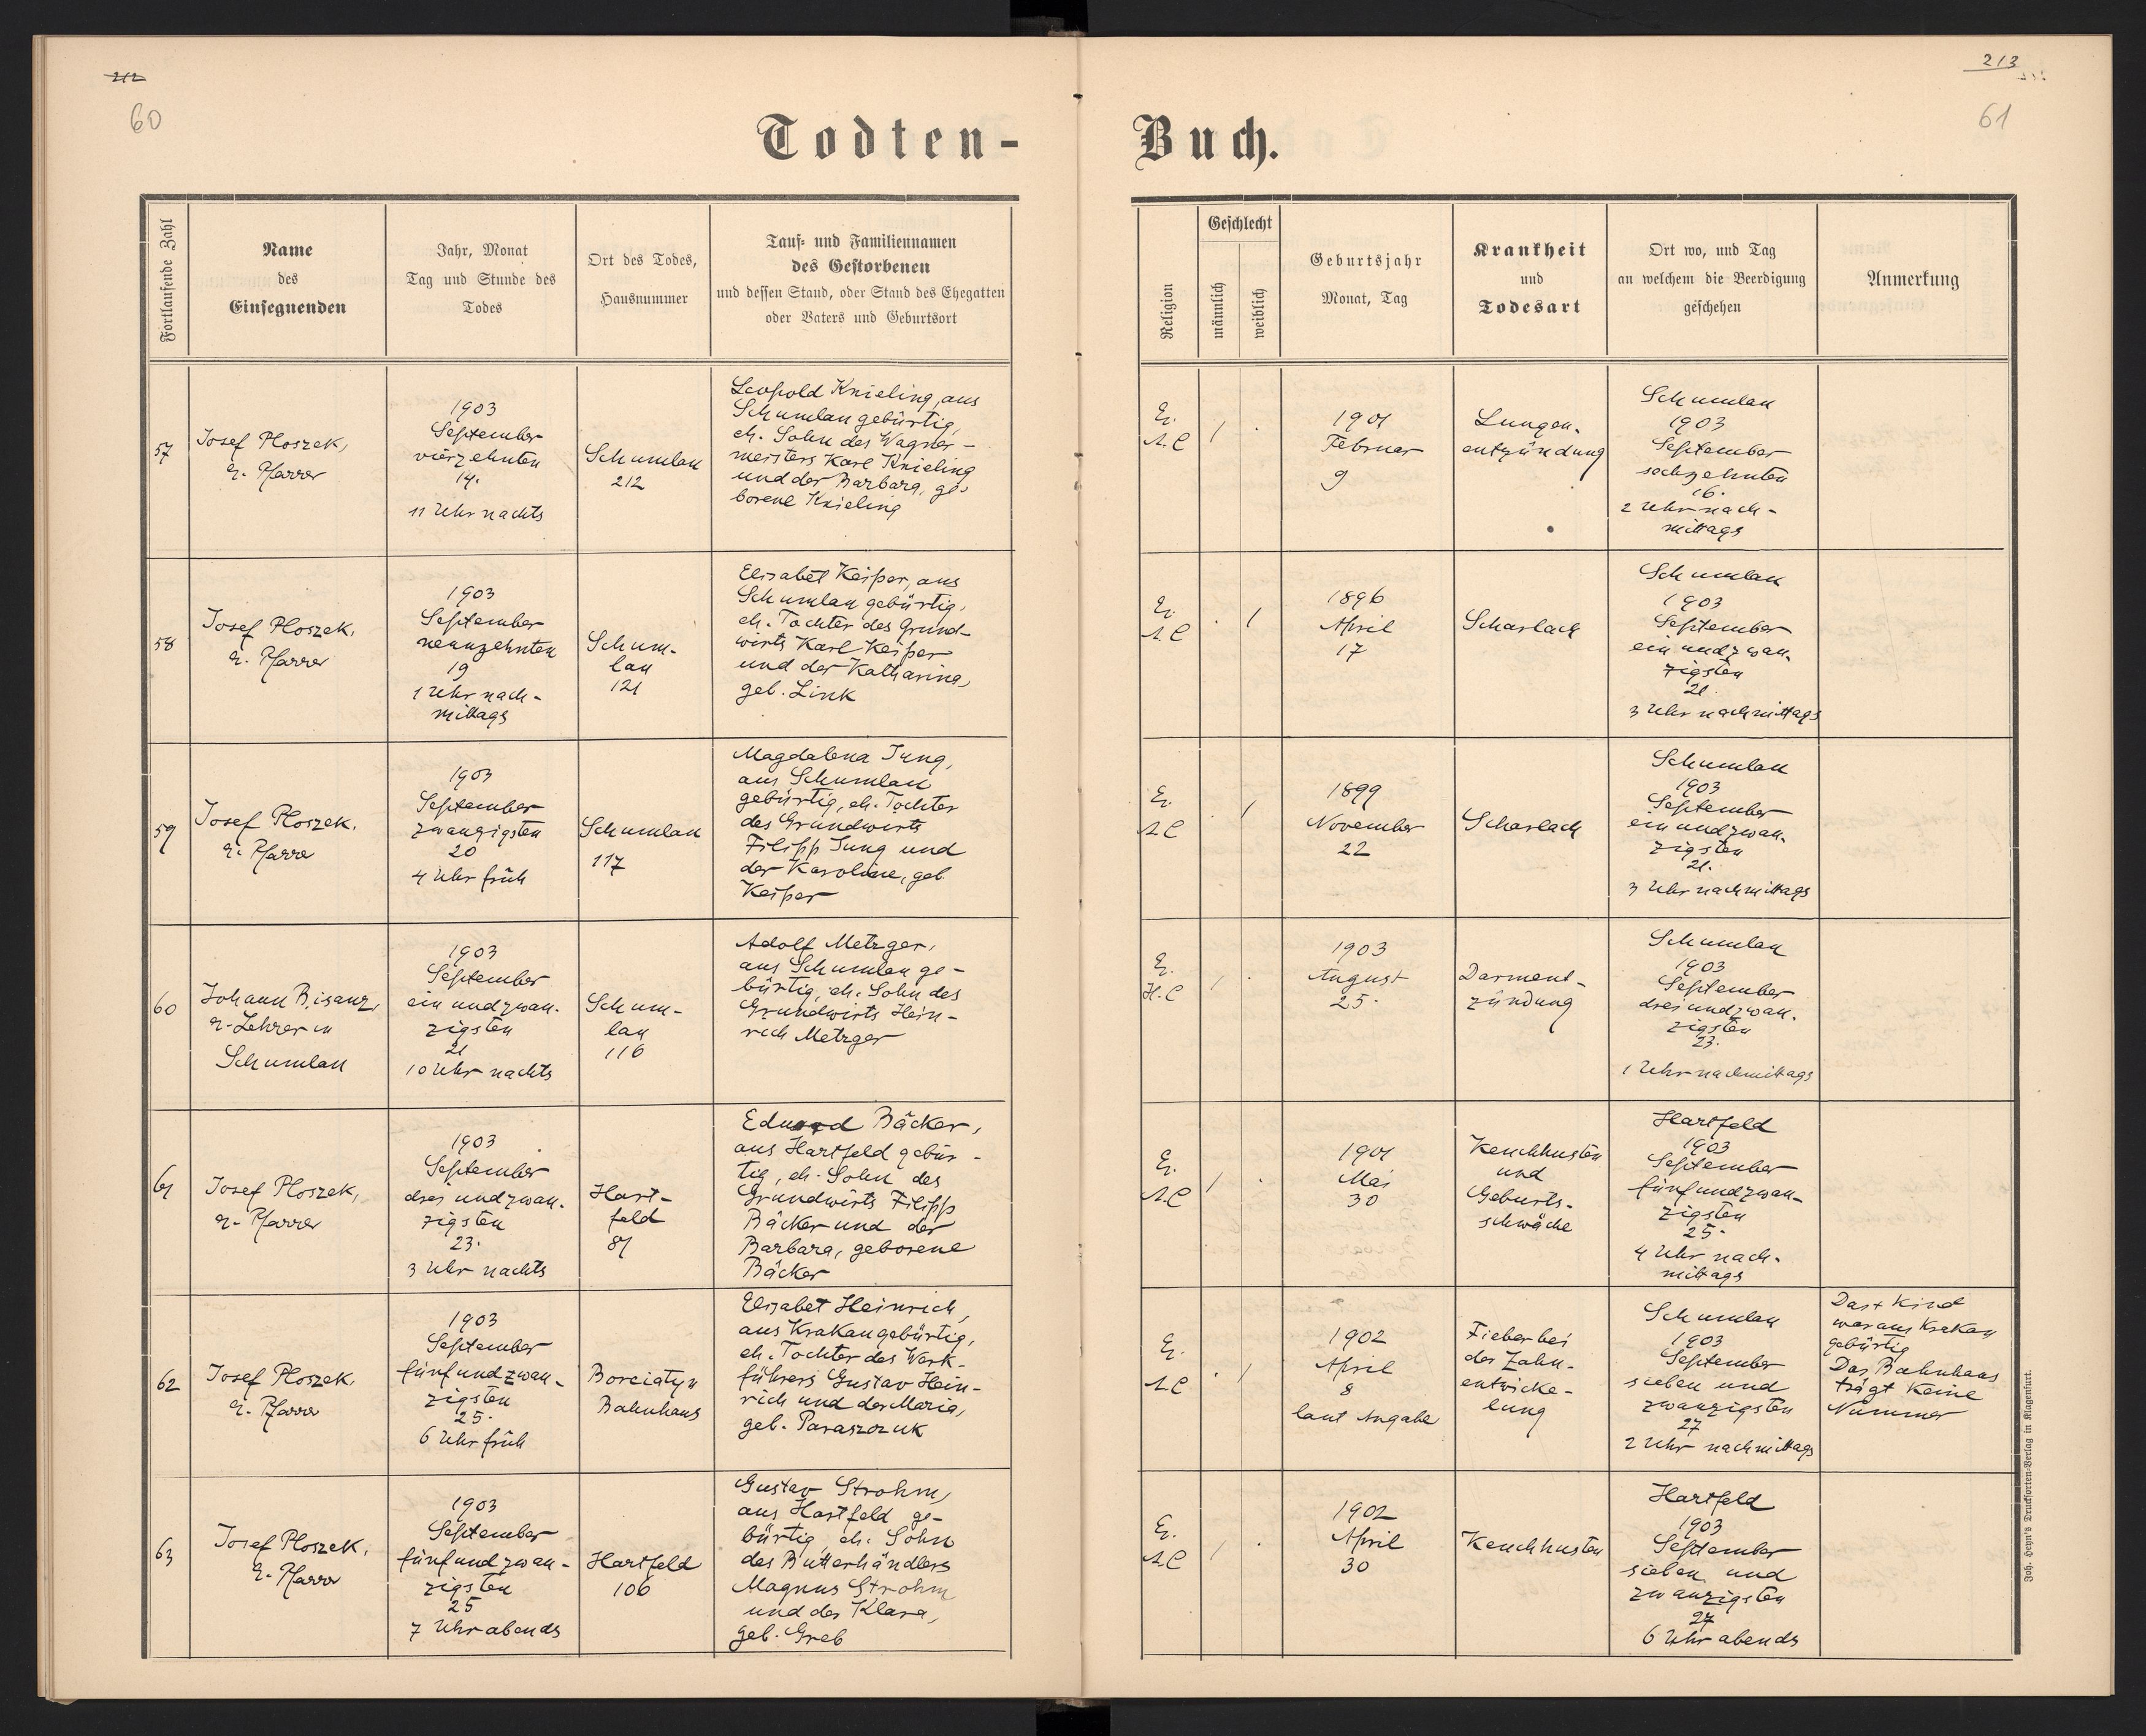 212
60
Todten-
Fortlaufende Zahl
Name
des
Einsegnenden
Jahr, Monat
Tag und Stunde des
Todes
Ort des Todes,
Hausnummer
Tauf- und Familiennamen
des Gestorbenen
und dessen Stand, oder Stand des Ehegatten
oder Vaters und Geburtsort
57
Josef Ploszek,
e. Pfarrer
1903
September
vierzehnten
14.
11 Uhr nachts
Schumlau
212
Leopold Knieling, aus
Schumlau gebürtig,
eh. Sohn des Wagner-
meisters Karl Knieling
und der Barbara, ge-
borene Knieling
58
Josef Ploszek,
e. Pfarrer
1903
September
neunzehnten
19
1 Uhr nach-
mittags
Schum-
lau
121
Elisabet Keiper, aus
Schumlau gebürtig,
eh. Tochter des Grund-
wirts Karl Keiper
und der Katharina,
geb. Link
59
Josef Ploszek,
e. Pfarrer
1903
September
zwanzigsten
20
4 Uhr früh
Schumlau
117
Magdalena Jung,
aus Schumlau
gebürtig, eh. Tochter
des Grundwirts
Filipp Jung und
der Karoline, geb.
Keiper
60
Johann Bisanz,
e. Lehrer in
Schumlau
1903
September
ein und zwan-
zigsten
21
10 Uhr nachts
Schum-
lau
116
Adolf Metzger,
aus Schumlau ge-
bürtig, eh. Sohn des
Grundwirts Hein-
rich Metzger
61
Josef Ploszek,
e. Pfarrer
1903
September
drei und zwan-
zigsten
23.
3 Uhr nachts
Hart-
feld
81
Eduard Bäcker,
aus Hartfeld gebür-
tig, eh. Sohn des
Grundwirts Filipp
Bäcker und der
Barbara, geborene
Bäcker
62
Josef Ploszek,
e. Pfarrer
1903
September
fünf und zwan-
zigsten
25.
6 Uhr früh
Borciatyn
Bahnhaus
Elisabet Heinrich,
aus Krakau gebürtig,
eh. Tochter des Werk-
führers Gustav Hein-
rich und der Maria,
geb. Paraszczuk
63
Josef Ploszek,
e. Pfarrer
1903
September
fünf und zwan-
zigsten
25
7 Uhr abends
Hartfeld
106
Gustav Strohm,
aus Hartfeld ge-
bürtig, eh. Sohn
des Butterhändlers
Magnus Strohm
und der Klara,
geb. Greb
213
61
Buch.
Religion
Geschlecht
männlich
weiblich
Geburtsjahr
Monat, Tag
Krankheit
und
Todesart
Ort wo, und Tag
an welchem die Beerdigung
geschehen
Anmerkung
E.
A.C
1901
Februar
9
Lungen-
entzündung
Schumlau
1903
September
sechzehnten
16.
2 Uhr nach-
mittags
E.
A.C
1896
April
17
Scharlach
Schumlau
1903
September
ein und zwan-
zigsten
21
3 Uhr nachmittags
E.
A.C
1899
November
22
Scharlach
Schumlau
1903
September
ein und zwan-
zigsten
21.
3 Uhr nachmittags
E.
H.C
1903
August
25.
Darment-
zündung
Schumlau
1903
September
drei und zwan-
zigsten
23.
1 Uhr nachmittags
E.
A.C
1901
Mai
30
Keuchhusten
und
Geburts-
schwäche
Hartfeld
1903
September
fünf und zwan-
zigsten
25.
4 Uhr nach-
mittags
E.
A.C
1902
April
8
laut Angabe
Fieber bei
der Zahn-
entwicke-
lung
Schumlau
1903
September
sieben und
zwanzigsten
27
2 Uhr nachmittags
Das + Kind
war aus Krakau
gebürtig
Das Bahnhaus
trägt keine
Nummer
E.
A.C
1902
April
30
Keuchhusten
Hartfeld
1903
September
sieben und
zwanzigsten
27
6 Uhr abends
Joh. Heyn's Drucksorten-Verlag in Klagenfurt.